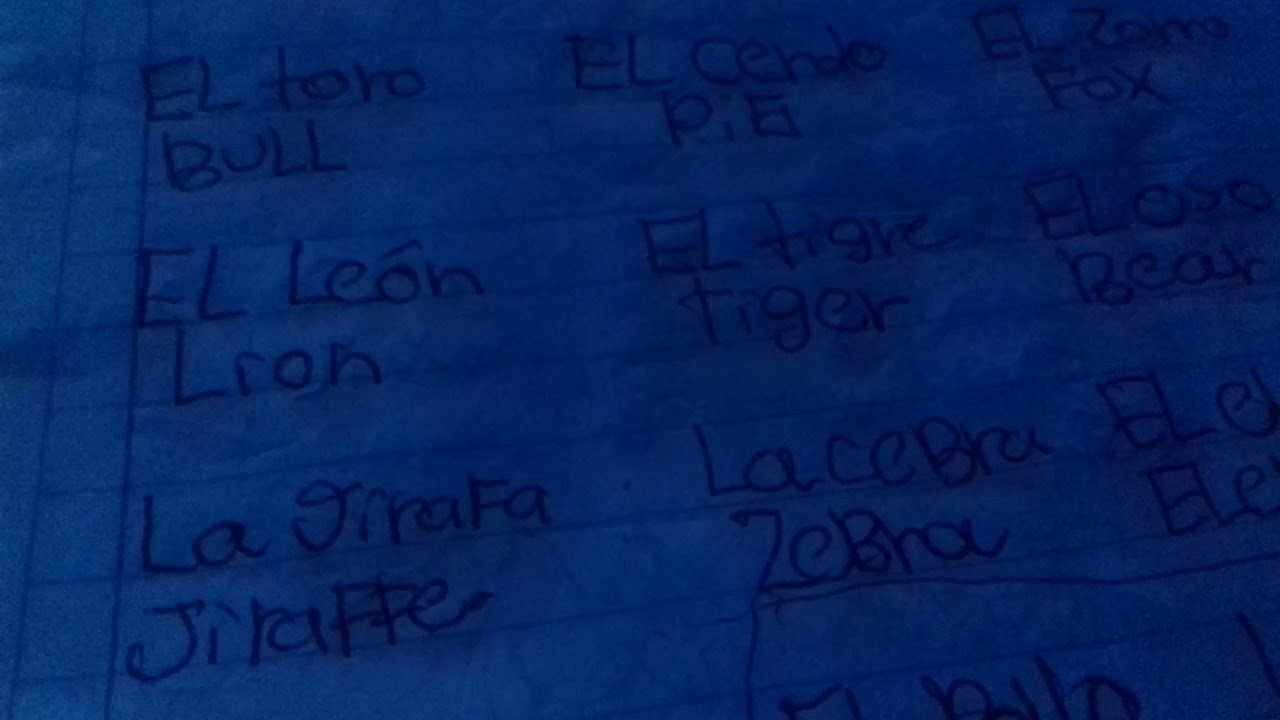 EL toro EL Cerdo EL Zorro
BULL PiG FOX
EL León EL tigre EL OSO
Lion tiger Bear
La JiraFa La ceBra EL
JiraFFe ZeBra
EL Pollo